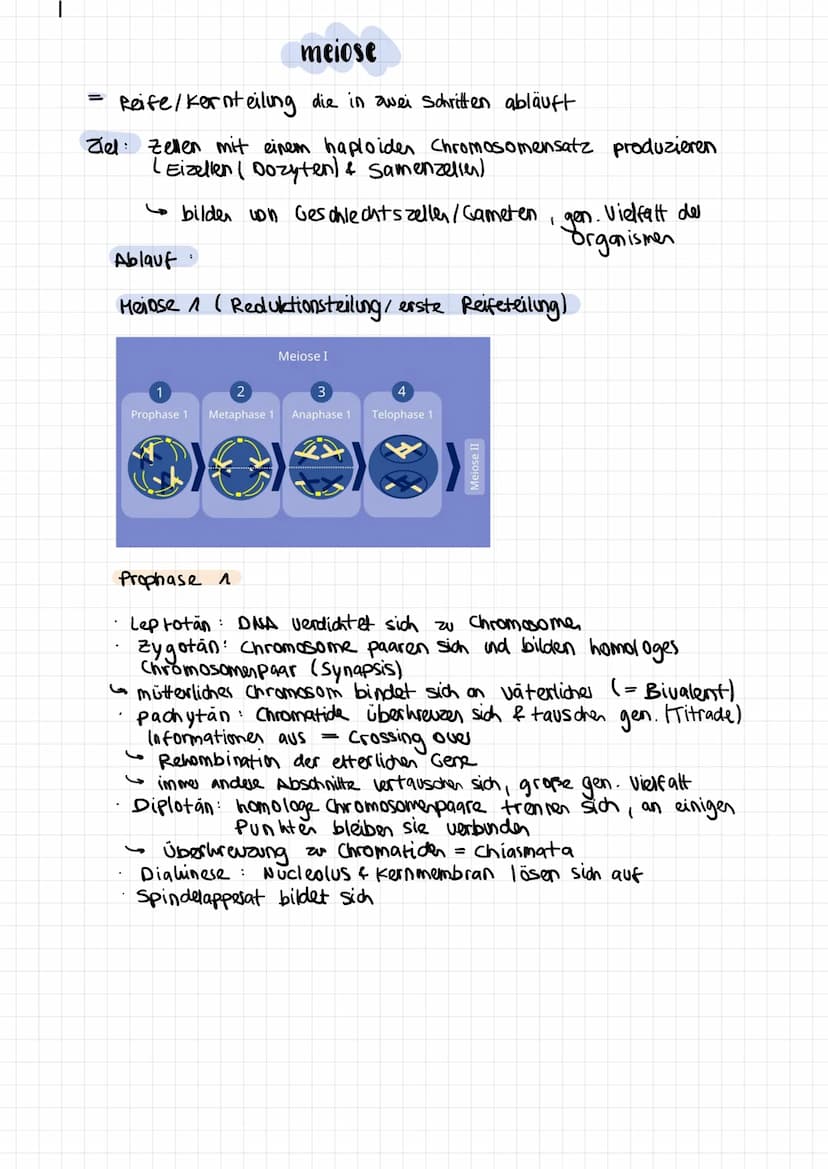 meiose
= Reife/Kernteilung die in zwei Schritten abläuft
Ziel: Zellen mit einem haploiden Chromosomensatz produzieren
(Eizellen (Oozyten) & Samenzellen)
↳ bilden von Geschlechtszellen/Gameten, gen. Vielfalt der
Organismen
Ablauf:
Meiose 1 (Reduktionsteilung/ erste Reifeteilung)
Meiose I
1 2 3 4
Prophase 1 Metaphase 1 Anaphase 1 Telophase 1
Meiose II
Prophase 1
· Leptotän: DNA verdichtet sich zu Chromosomen
· Zygotän: Chromosome paaren sich und bilden homologes
Chromosomenpaar (Synapsis)
↳ mütterliches Chromosom bindet sich an väterliches (= Bivalent)
· Pachytän: Chromatide überkreuzen sich & tauschen gen. (Titrade)
Informationen aus = Crossing over
↳ Rekombination der elterlichen Gene
↳ immer andere Abschnitte vertauschen sich, große gen. Vielfalt
· Diplotän: homologe Chromosomenpaare trennen sich, an einigen
Punkten bleiben sie verbunden
↳ Überkreuzung zw Chromatiden = Chiasmata
· Diakinese: Nucleolus & Kernmembran lösen sich auf
· Spindelapperat bildet sich